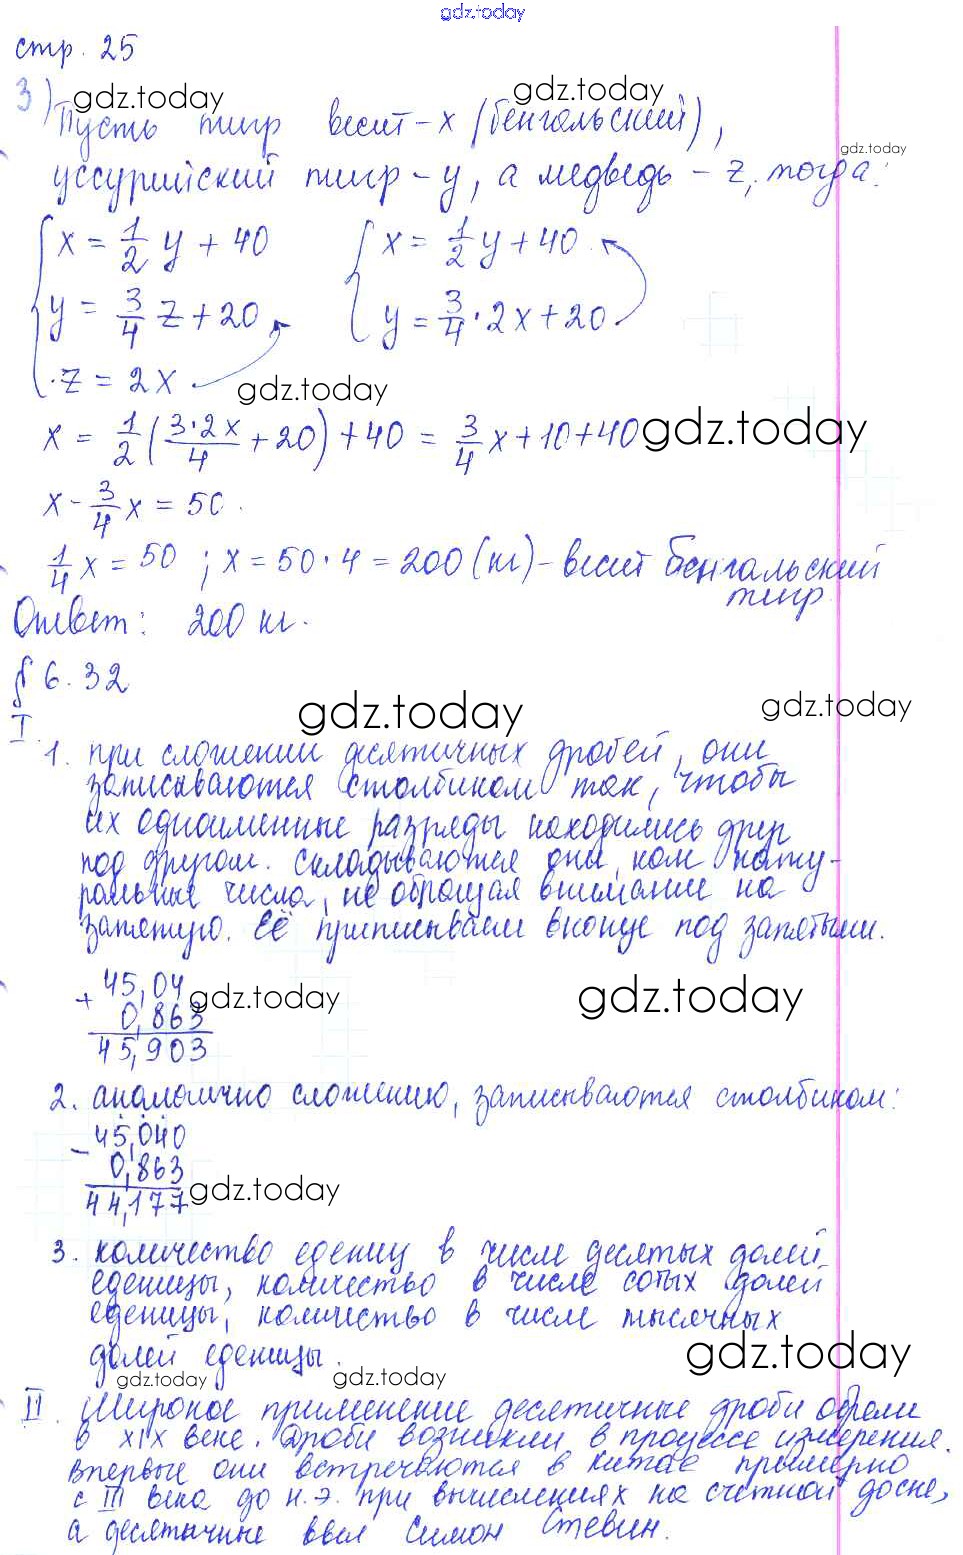 gdz.today
стр. 25
3) gdz.today gdz.today
Пусть тигр весит - x (бенгальский),
gdz.today
уссурийский тигр - y, а медведь - z, тогда:
x = 1/2 y + 40 x = 1/2 y + 40
y = 3/4 z + 20 y = 3/4 · 2x + 20
z = 2x gdz.today
x = 1/2 (3·2x/4 + 20) + 40 = 3/4 x + 10 + 40 gdz.today
x - 3/4 x = 50.
1/4 x = 50 ; x = 50 · 4 = 200 (кг) - весит бенгальский
тигр.
Ответ: 200 кг.
§ 6.32
gdz.today gdz.today
I.
1. при сложении десятичных дробей, они
записываются столбиком так, чтобы
их одноименные разряды находились друг
под другом. Складываются они, как нату-
ральные числа, не обращая внимание на
запятую. Её приписываем вконце под запятыми.
+ 45,04 gdz.today gdz.today
0,863
45,903
2. аналогично сложению, записываются столбиком:
- 45,040
0,863
44,177 gdz.today
3. количество едениц в числе десятых долей
еденицы, количество в числе сотых долей
еденицы, количество в числе тысячных
долей еденицы. gdz.today
gdz.today gdz.today
II. Широкое применение десятичные дроби обрели
в XIX веке. Дроби возникли в процессе измерения.
Впервые они встречаются в Китае примерно
с III века до н.э. при вычислениях на счетной доске,
а десятичные ввел Симон Стевин.